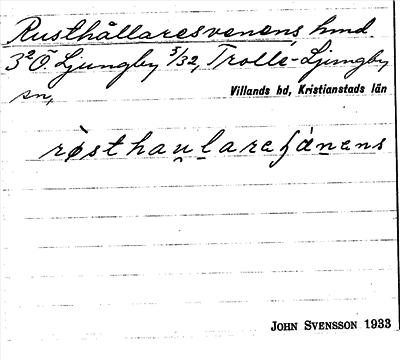 Rusthållaresvenens, hmd
3²Ö. Ljungby 5/32, Trolle-Ljungby
sn,
Villands hd, Kristianstads län
røsthau̯laref
JOHN SVENSSON 1933